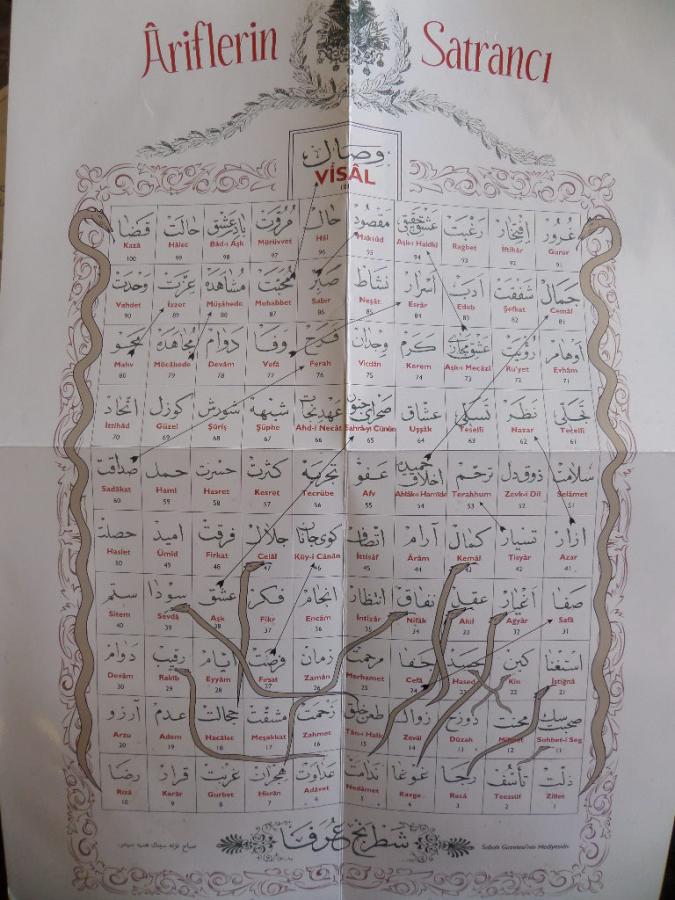 Âriflerin Satrancı
وصال
VİSÂL
101
غرور افتخار رغبت عشق حقيقى مقصود حال مروت باد عشق حالت قضا
Kazâ Hâlec Bâd-ı Aşk Mürüvvet Hâl Maksûd Aşk-ı Hakîkî Rağbet İftihâr Gurur
100 99 98 97 96 95 94 93 92 91
جمال شفقت ادب اسرار نشاط صبر محبت مشاهده عزت وحدت
Vahdet İzzet Müşâhede Muhabbet Sabır Neşât Esrâr Edeb Şefkat Cemâl
90 89 88 87 86 85 84 83 82 81
اوهام رؤيت عشق مجازى كرم وجدان فرح وفا دوام مجاهده محو
Mahv Mücâhede Devâm Vefâ Ferah Vicdân Kerem Aşk-ı Mecâzî Ru'yet Evhâm
80 79 78 77 76 75 74 73 72 71
تجلى نظر تسلى عشاق شبهه شورش كوزل اتحاد
İttihâd Güzel Şûriş Şüphe Ahd-i Necât Sahrâ-yı Cünûn Uşşâk Tesellî Nazar Tecellî
70 69 68 67 66 65 64 63 62 61
سلامت ذوق دل ترحم اخلاق حميده عفو تجربه كثرت حسرت حمد صداقت
Sadâkat Haml Hasret Kesret Tecrübe Afv Ahlâk-ı Hamîde Terahhum Zevk-i Dil Selâmet
60 59 58 57 56 55 54 53 52 51
ازار تسيار كمال آرام اتصاف كوى جانان جلال فرقت اميد حصلت
Haslet Ümid Firkat Celâl Kûy-i Cânân İttisâf Ârâm Kemâl Tisyâr Azar
50 49 48 47 46 45 44 43 42 41
صفا اغيار عقل نفاق انتظار انجام فكر عشق سودا ستم
Sitem Sevdâ Aşk Fikr Encâm İntizâr Nifâk Akıl Ağyâr Safâ
40 39 38 37 36 35 33 32 31
استغنا كين حسد جفا مرحمت زمان فرصت ايام رقيب دوام
Devâm Rakîb Eyyâm Fırsat Zamân Merhamet Cefâ Hased Kin İstiğnâ
30 29 28 27 26 25 24 23 22 21
محنت دوزح زوال زحمت مشقت خجالت عدم آرزو
Arzu Adem Hacâlet Meşakkat Zahmet Tân-ı Halk Zevâl Dûzah Mihnet Sohbet-i Seg
20 19 18 17 16 15 14 13 12 11
ذلت تأسف رجا غوغا ندامت عداوت هجران غربت قرار رضا
Rızâ Karâr Gurbet Hicrân Adâvet Nedâmet Kavga Recâ Teessüf Zillet
10 9 8 7 6 3 2 1
شطرنج عرفا
Sabah Gazetesi'nin Hediyesidir.